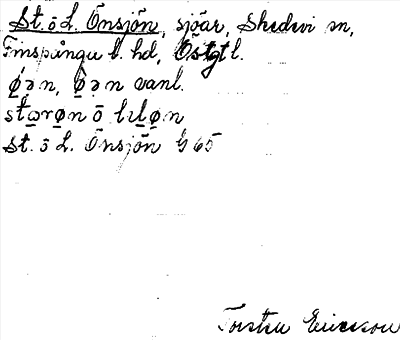 St. ō L. Önsjön, sjöar, Skedevi sn,
Finspångu l. hd, Östgtl.
ǿ̣ən, ø̣̂ən vanl.
stərøn ō lıløn
St. ō L. Önsjön G 65
Torsten Ericsson